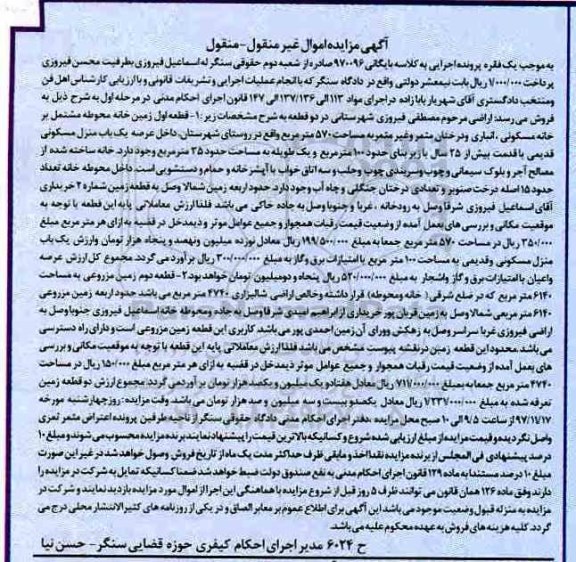 آگهی مزایده اموال غیر منقول-منقول
به موجب یک فقره پرونده اجرایی به کلاسه بایگانی ۹۷۰۰۹۶ صادره از شعبه دوم حقوقی سنگر له اسماعیل فیروزی بطرفیت محسن فیروزی
پرداخت ۷/۰۰۰/۰۰۰ ریال بابت نیمعشر دولتی واقع در دادگاه سنگر که با انجام عملیات اجرایی و تشریفات قانونی و با ارزیابی کارشناس اهل فن
ومنتخب دادگستری آقای شهریار بابازاده در اجرای مواد ۱۱۳ الی ۱۳۷/۱۳۶ الی ۱۴۷ قانون اجرای احکام مدنی در مرحله اول به شرح ذیل به
فروش می رسد: اراضی مرحوم مصطفی فیروزی شهرستانی در دو قطعه به شرح مشخصات زیر: ۱-قطعه اول زمین خانه محوطه مشتمل بر
خانه مسکونی، انباری ودرختان مثمر وغیر مثمر به مساحت ۵۷۰ مترمربع واقع در روستای شهرستان، داخل عرصه یک باب منزل مسکونی
قدیمی با قدمت بیش از ۲۵ سال با زیر بنای حدود ۱۰۰ مترمربع و یک طویله به مساحت حدود ۳۵ مترمربع وجود دارد. خانه ساخته شده از
مصالح آجر و بلوک سیمانی و چوب وسربندی چوب وحلب و سه اتاق خواب با آشپزخانه و حمام و دستشویی است. داخل محوطه خانه تعداد
حدود ۱۵ اصله درخت صنوبر و تعدادی درختان جنگلی و چاه آب وجود دارد. حدود اربعه زمین شمالا وصل به قطعه زمین شماره ۲ خریداری
آقای اسماعیل فیروزی شرقا وصل به رودخانه، غربا و جنوبا وصل به جاده خاکی می باشد. فلذا ارزش معاملاتی پایه این قطعه با توجه به
موقعیت مکانی و بررسی های بعمل آمده از وضعیت قیمت رقبات همجوار و جمیع عوامل موثر و ذیمدخل در قضیه به ازای هر متر مربع مبلغ
۳۵۰/۰۰۰ ریال در مساحت ۵۷۰ متر مربع جمعا به مبلغ ۱۹۹/۵۰۰/۰۰۰ ریال معادل نوزده میلیون ونهصد و پنجاه هزار تومان وارزش یک باب
منزل مسکونی وقدیمی به ۱۰۰ متر مربع با امتیازات برق و گاز به مبلغ ۳۰۰/۰۰۰/۰۰۰ ریال بر آورد می گردد. مجموع کل ارزش عرصه
واعیان با امتیازات برق و گاز واشجار به مبلغ ۵۲۰/۰۰۰/۰۰۰ ریال پنجاه و دومیلیون تومان خواهد بود. ۲-قطعه دوم زمین مزروعی به مساحت
۶۱۴۰ متر مربع که در ضلع شرقی( خانه ومحوطه) قرار داشته وخالص اراضی شالیزاری ۴۷۴۰ متر مربع می باشد. حدود اربعه زمین مزروعی
۶۱۴۰ متر مربعی شمالا وصل به زمین قربان پور خریداری از ابراهیم امیدی شرقا وصل به جاده ومحوطه خانه اسماعیل فیروزی جنوبا وصل به
اراضی فیروزی غربا سراسر وصل به زهکش وورای آن زمین احمدی پور می باشد. کاربری این قطعه زمین مزروعی است و دارای راه دسترسی
می باشد. محدود این قطعه زمین در نقشه پیوست مشخص می باشد. فلذا ارزش معاملاتی پایه این قطعه با توجه به موقعیت مکانی و بررسی
های بعمل آمده از وضعیت قیمت رقبات همجوار و جمیع عوامل موثر ذیمدخل در قضیه به ازای هر متر مربع مبلغ ۱۵۰/۰۰۰ ریال در مساحت
۴۷۴۰ متر مربع جمعا به مبلغ ۷۱۷/۰۰۰/۰۰۰ ریال معادل هفتاد و یک میلیون و یکصد هزار تومان بر آورد می گردد. مجموع ارزش دو قطعه زمین
تعرفه شده به مبلغ ۱/۲۳۷/۰۰۰/۰۰۰ ریال معادل یکصد و بیست و سه میلیون و صد هزار تومان می باشد. وقت مزایده: روز چهارشنبه مورخه
۹۷/۱۱/۱۷ از ساعت ۹/۵ الی ۱۰ صبح محل مزایده ،دفتر اجرای احکام مدنی دادگاه حقوقی سنگر از ناحیه طرفین پرونده اعتراض مثمر ثمری
واصل نگردیده و قیمت مزایده از مبلغ ارزیابی شده شروع و کسانیکه بالاترین قیمت را پیشنهاد نمایند برنده مزایده محسوب می شوند و مبلغ ۱۰
درصد پیشنهادی فی المجلس از برنده مزایده نقدا اخذ و مابقی ظرف حداکثر مدت یک ماه از تاریخ فروش وصول خواهد شد در غیر این صورت
مبلغ ۱۰ درصد مستندا به ماده ۱۲۹ قانون اجرای احکام مدنی به نفع صندوق دولت ضبط خواهد شد ضمنا کسانیکه تمایل به شرکت در مزایده را
دارند وفق ماده ۱۲۶ همان قانون می توانند ظرف ۵ روز قبل از شروع مزایده با هماهنگی این اجرا از اموال مورد مزایده بازدید نمایند و شرکت در
مزایده به منزله قبول وضعیت موجود می باشد این آگهی برای اطلاع عموم بر معابر الصاق و در یکی از روزنامه های کثیر الانتشار محلی درج می
گردد. کلیه هزینه های فروش به عهده محکوم علیه می باشد.
ح ۶۰۲۴ مدیر اجرای احکام کیفری حوزه قضایی سنگر- حسن نیا